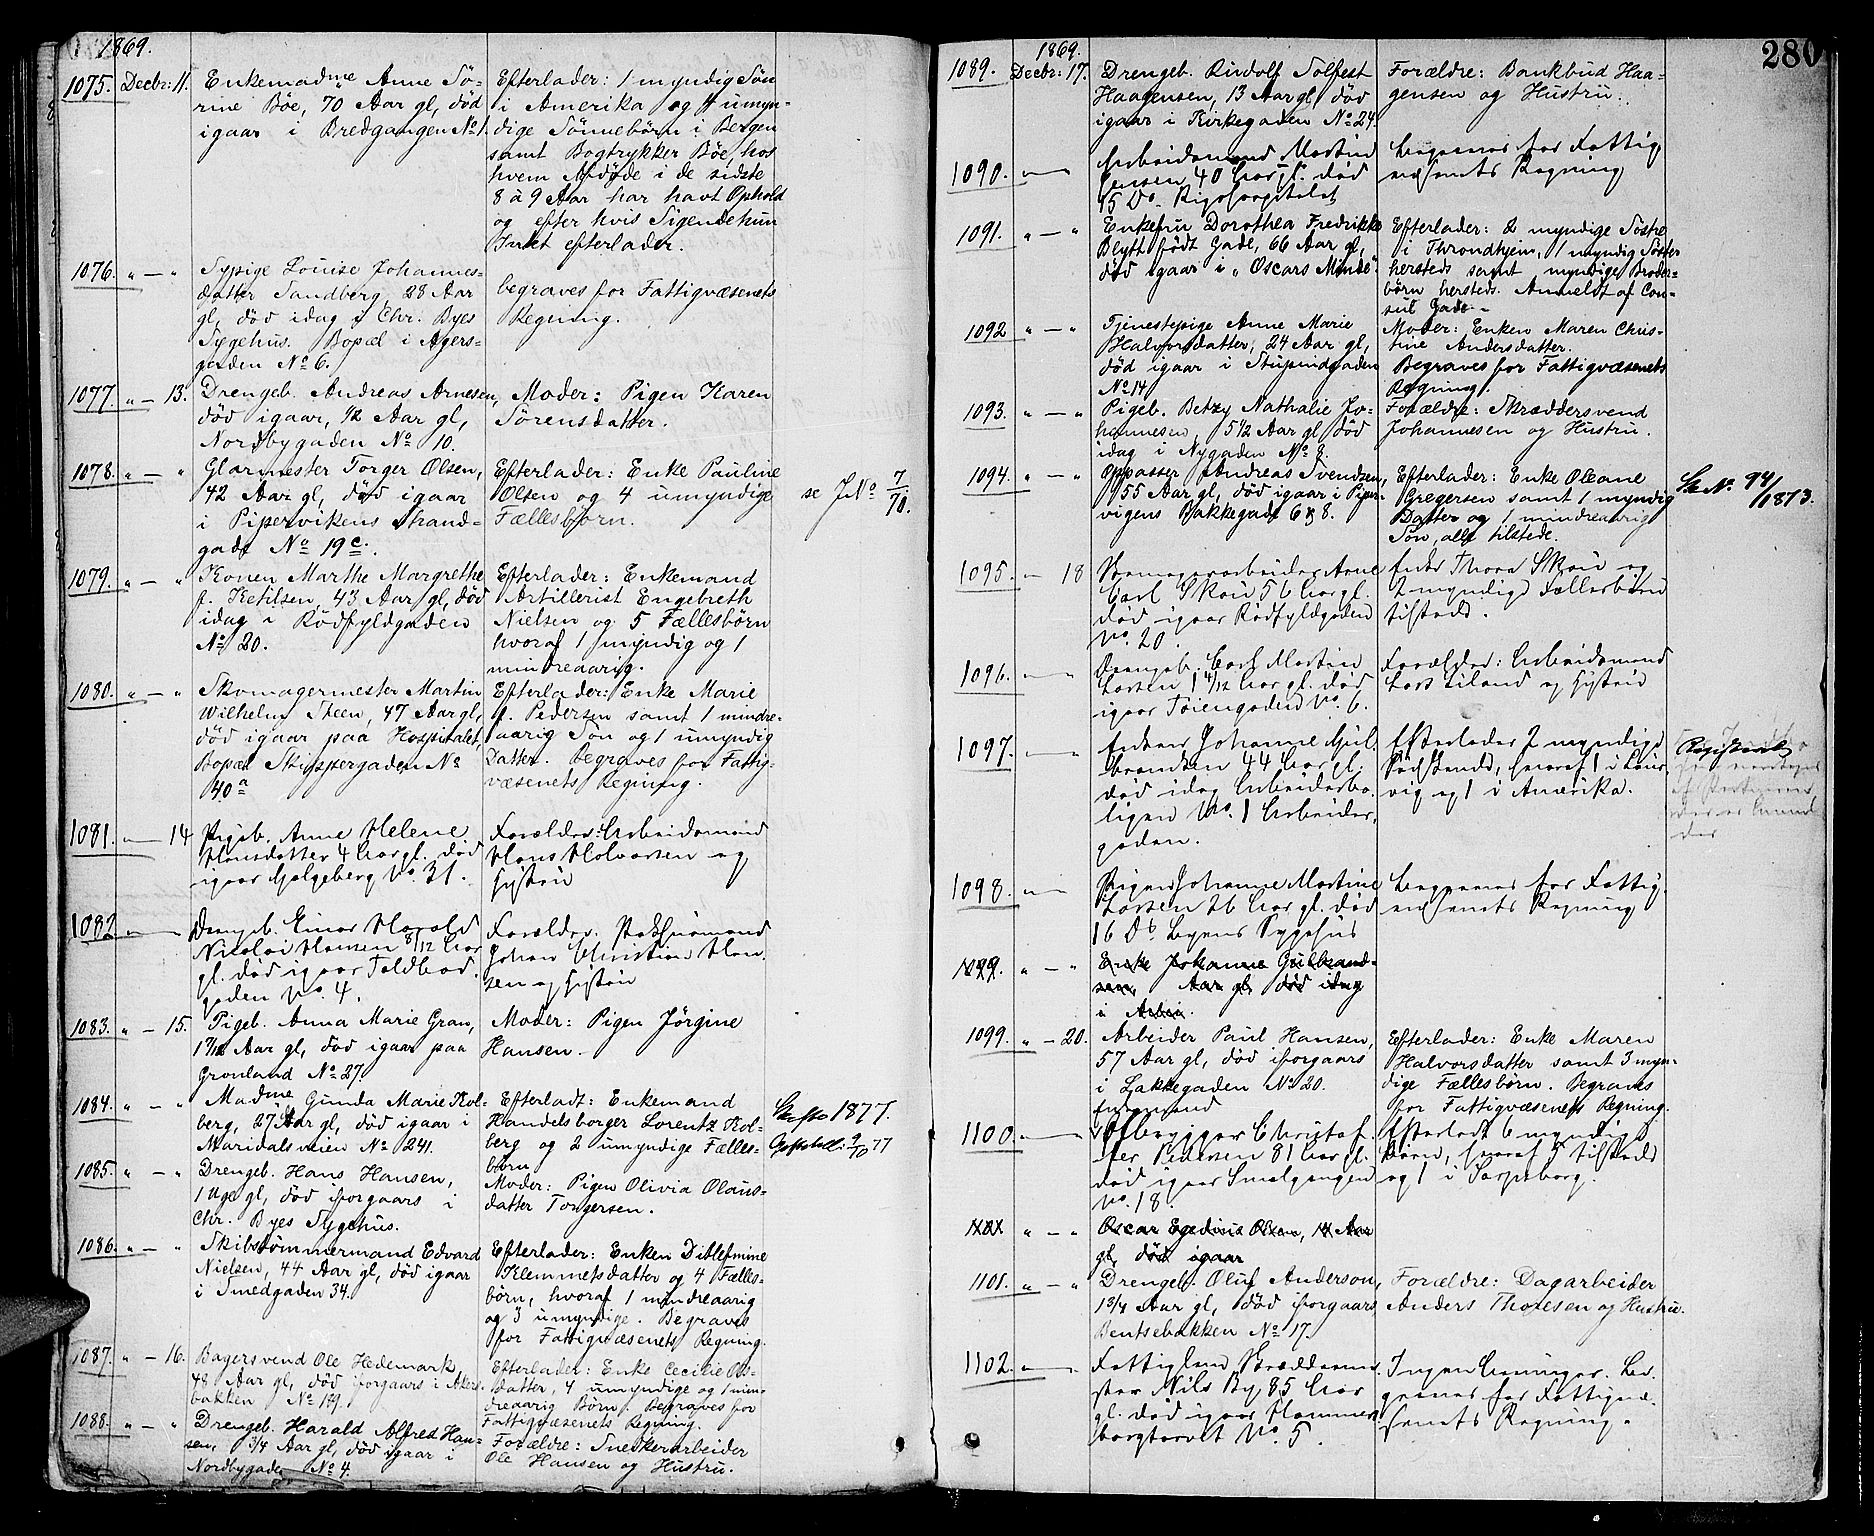 1869.
1075. Decbr: 11. Enkemadme Anne Sö-
rine Böe, 70 Aar gl, död
igaar i Bredgangen No 1.
Efterlader: 1 myndig Søn
i Amerika og 4 umyn-
dige Sönnebörn i Bergen
samt Bogtrykker Böe, hos
hvem Afdöde i de sidste
8 à 9 Aar har havt Ophold
og efter hvis Sigende hun
Intet efterlader.
1076. " — " Sypige Louise Johannes-
datter Sandberg, 28 Aar
gl, död idag i Chr. Byes
Sygehus. Bopæl i Agers-
gaden No 6.
begraves for Fattigvæsenets
Regning.
1077. " — 13. Drengeb. Andreas Arnesen,
död igaar, 1/2 Aar gl,
Nordbygaden No 10.
Moder: Pigen Karen
Sörensdatter.
1078. " — " Glarmester Torger Olsen,
42 Aar gl, död igaar
i Pipervikens Strand-
gade No 19 c.
Efterlader: Enke Pauline
Olsen og 4 umyndige
Fællesbjorn.
se JNo 7/70.
1079. " — " Konen Marthe Margrethe
f. Ketilsen, 43 Aar gl, död
idag i Rödfyldgaden
No 20.
Efterlader: Enkemand
Artillerist Engebreth
Nielsen og 5 Fællesbörn
hvoraf 1 myndig og 1
mindreaarig.
1080. " — " Skomagermester Martin
Wilhelm Steen, 47 Aar gl,
död igaar paa Hospitalet,
Bopæl Skippergaden No
40 a
Efterlader: Enke Marie
f. Pedersen samt 1 mindre-
aarig Søn og 1 umyndig
Datter. Begraves for Fattig-
væsenets Regning.
1081. " — 14 Pigeb. Anne Helene
Hansdatter 4 Aar gl. död
igaar Galgeberg No. 31.
Forældre: Arbeidsmand
Hans Halvorsen og
Hustru
1082 " — Drengeb. Einar Harald
Nicolai Hansen 8/12 Aar
gl. död igaar Toldbod.
gaden No. 4.
Forældre: Pakhusmand
Johan Christian Han.
sen og Hustru
1083. " — 15. Pigeb. Anna Marie Gran,
Aar gl, död igaar paa
Grönland No 27.
Moder: Pigen Jörgine
Hansen.
1084. " — " Madme Gunda Marie Kol-
berg, 27 Aar gl, död igaar i
Maridalsveien No 241.
Efterladt: Enkemand
Handelsborger Lorentz Kol-
berg og 2 umyndige Fælles-
börn
1877.
1085. " — " Drengeb. Hans Hansen,
1 Uge gl, död iforgaars i
Chr. Byes Sygehus.
Moder: Pigen Olivia Olaus-
datter Torgersen.
1086. " — " Skibstömmermand Edvard
Nielsen, 44 Aar gl, död igaar
i Smedgaden 34.
Efterlader: Enken Ditlefmine
Klemmetsdatter og 4 Fælles-
börn, hvoraf 1 mindreaarig
og 3 umyndige. Begraves
for Fattigvæsenets Regning.
1087. " — 16. Bagersvend Ole Hedemark,
48 Aar gl, död iforgaars i Akers-
bakken No
Efterlader: Enke Cecilie Ols-
datter, 4 umyndige og 1 min-
dreaarig Börn. Begraves for
Fattigvæsenets Regning.
1088. " — " Drengeb. Harald Alfred Han-
sen, 3/4 Aar gl, död igaar i
Nordbygaden No 4.
Forældre: Snedkerarbeider
Ole Hansen og Hustru.
280
1869.
1089. Decbr: 17. Drengeb. Rudolf Solfest
Haagensen, 13 Aar gl, död
igaar i Kirkegaden No 24.
Forældre: Bankbud Haa-
gensen og Hustru.
1090. " — Arbeidsmand Martin
Jensen 40 Aar gl. död
15 Ds. Rigshospitalet
Begraves for Fattig.
væsenets Regning
1091. " — " Enkefru Dorothea Fredrikke
Blytt födt Gade, 66 Aar gl,
död igaar i "Oscars Minde".
Efterlader: 2 myndige Söstre
i Throndhjem, 1 myndig Söster
hersteds samt myndige Broder-
börn hersteds. Anmeldt af Con-
sul Gade.
1092 " — " Tjenestepige Anne Marie
Halvorsdatter, 24 Aar gl,
död igaar i Stupindgaden
No 14
Moder: Enken Maren Chris-
tine Andersdatter.
Begraves for Fattigvæsenets
Regning.
1093. " — " Pigeb. Betzy Nathalie Jo-
hannesen, 5 1/2 Aar gl, död
idag i Nygaden No 8.
Forældre: Skræddersvend
Johannesen og Hustru.
1094. " — " Oppasser Andreas Svendsen,
55 Aar gl, död igaar i Piper-
vigens Bakkegade 6 & 8.
Efterlader: Enke Oleane
Gregersen samt 1 myndig
Datter og 1 mindreaarig
Søn, alle tilstede.
Se No. 94/1873.
1095. " — 18 Arne
Carl Skau 56 Aar gl.
död igaar Rødfyldgaden
No. 20
Enke Thora Skau og
2 myndige Fællesbörn
tilstede.
1096. " — " Drengeb. Carl Martin
Larsen 1 4/12 Aar gl. död
igaar Töiengaden No. 6.
Forældre: Arbeidsmand
Lars Eiland og Hustru
1097. " — Enken Johanne Gul.
brandsen 44 Aar gl.
död idag Arbeiderbo.
ligen No. 1 Arbeider.
gaden.
Efterlader 2 myndige
Södskende, hvoraf 1 i Laur.
vig og 1 i Amerika.
Registreret
1098. " — Pigen Johanne Martine
Larsen 26 Aar gl. död
16 Ds. Byens Sygehus
Begraves for Fattig.
væsenets Regning
1099. " — " Enke Johanne Gulbrand-
sen, Aar gl, död idag
i Arbei.
1099. " — 20. Arbeider Paul Hansen,
57 Aar gl, död iforgaars
i Lakkegaden No 20.
Efterlader: Enke Maren
Halvorsdatter samt 3 myn-
dige Fællesbörn. Begraves
for Fattigvæsenets Regning.
1100. " — Enkemand
Ølbrygger Christof.
fer Pedersen 81 Aar gl.
död igaar Smalgangen
No. 18.
Efterladt 6 myndige
Börn, hvoraf 5 tilstede
og 1 i Sarpsborg.
" — " Oscar Egedius Olsen, Aar
gl, död igaar
1101. " — " Drengeb. Oluf Anderson,
1 3/4 Aar gl, död iforgaars
Bentsebakken No 17.
Forældre: Dagarbeider
Anders Thoresen og Hustru.
1102. " — Fattiglem Skrædderme.
ster Nils By 85 Aar
gl. död igaar Hammers
borgtorvet No. 5.
Ingen Arvinger. Be.
graves for Fattigvæ.
senets Regning.